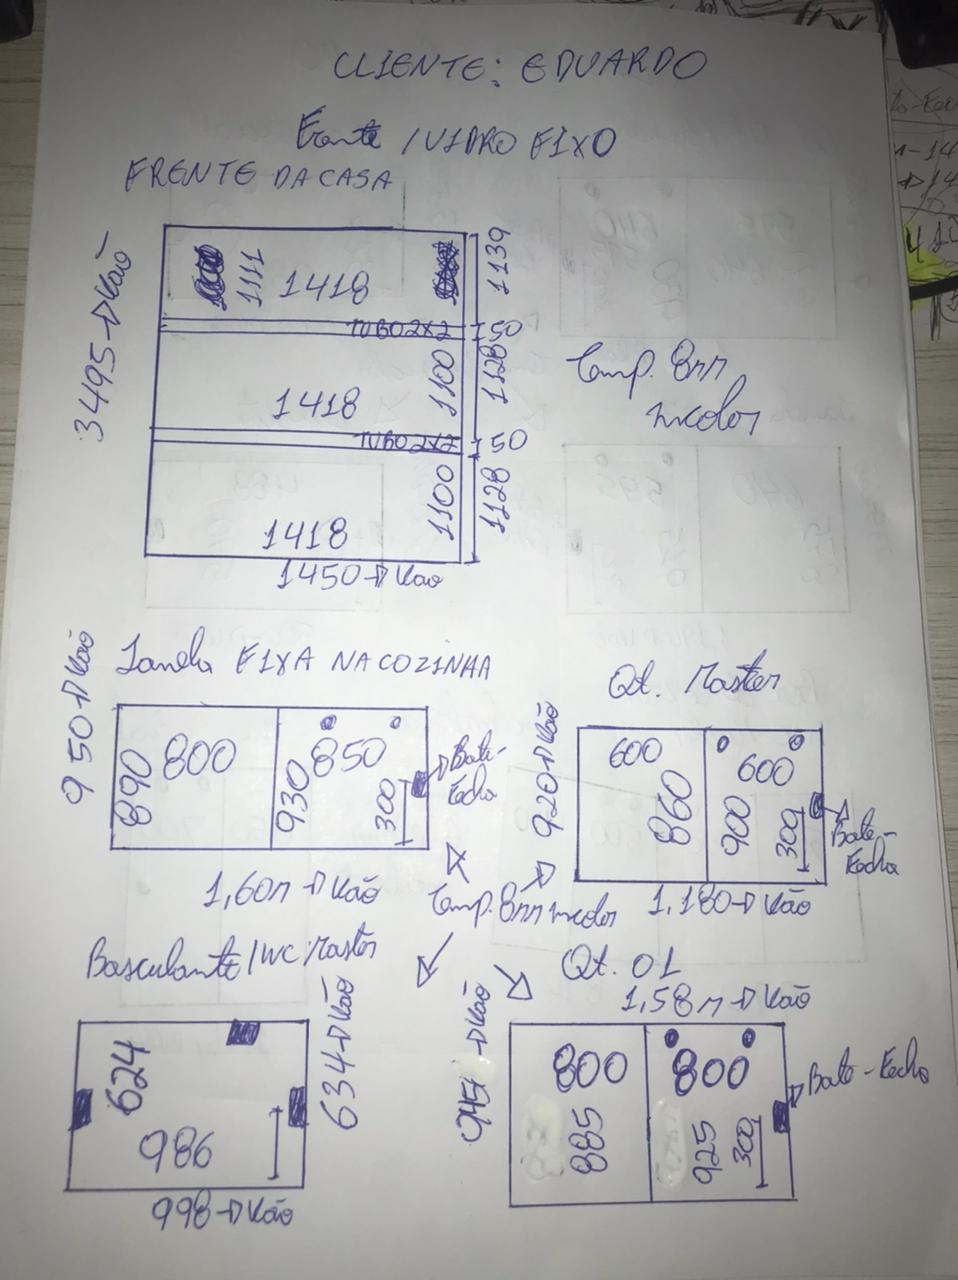 CLIENTE: EDUARDO
Frente / VIDRO FIXO
FRENTE DA CASA
3495 → Vão
1111
1418
1139
TUBO 2x2
50
1418
1100
1128
TUBO 2x2
50
1418
1100
1128
1450 → Vão
Temp. 8mm
incolor
Janela FIXA NA COZINHA
950 → Vão
890
800
930
850
300
Bate-
Fecha
1,60m → Vão
Qt. Master
920 → Vão
600
860
900
600
300
Bate-
Fecha
1,180 → Vão
Temp. 8mm incolor
Basculante / WC Master
624
986
634 → Vão
998 → Vão
Qt. 01
1,58m → Vão
945 → Vão
800
885
800
925
300
Bate-Fecha